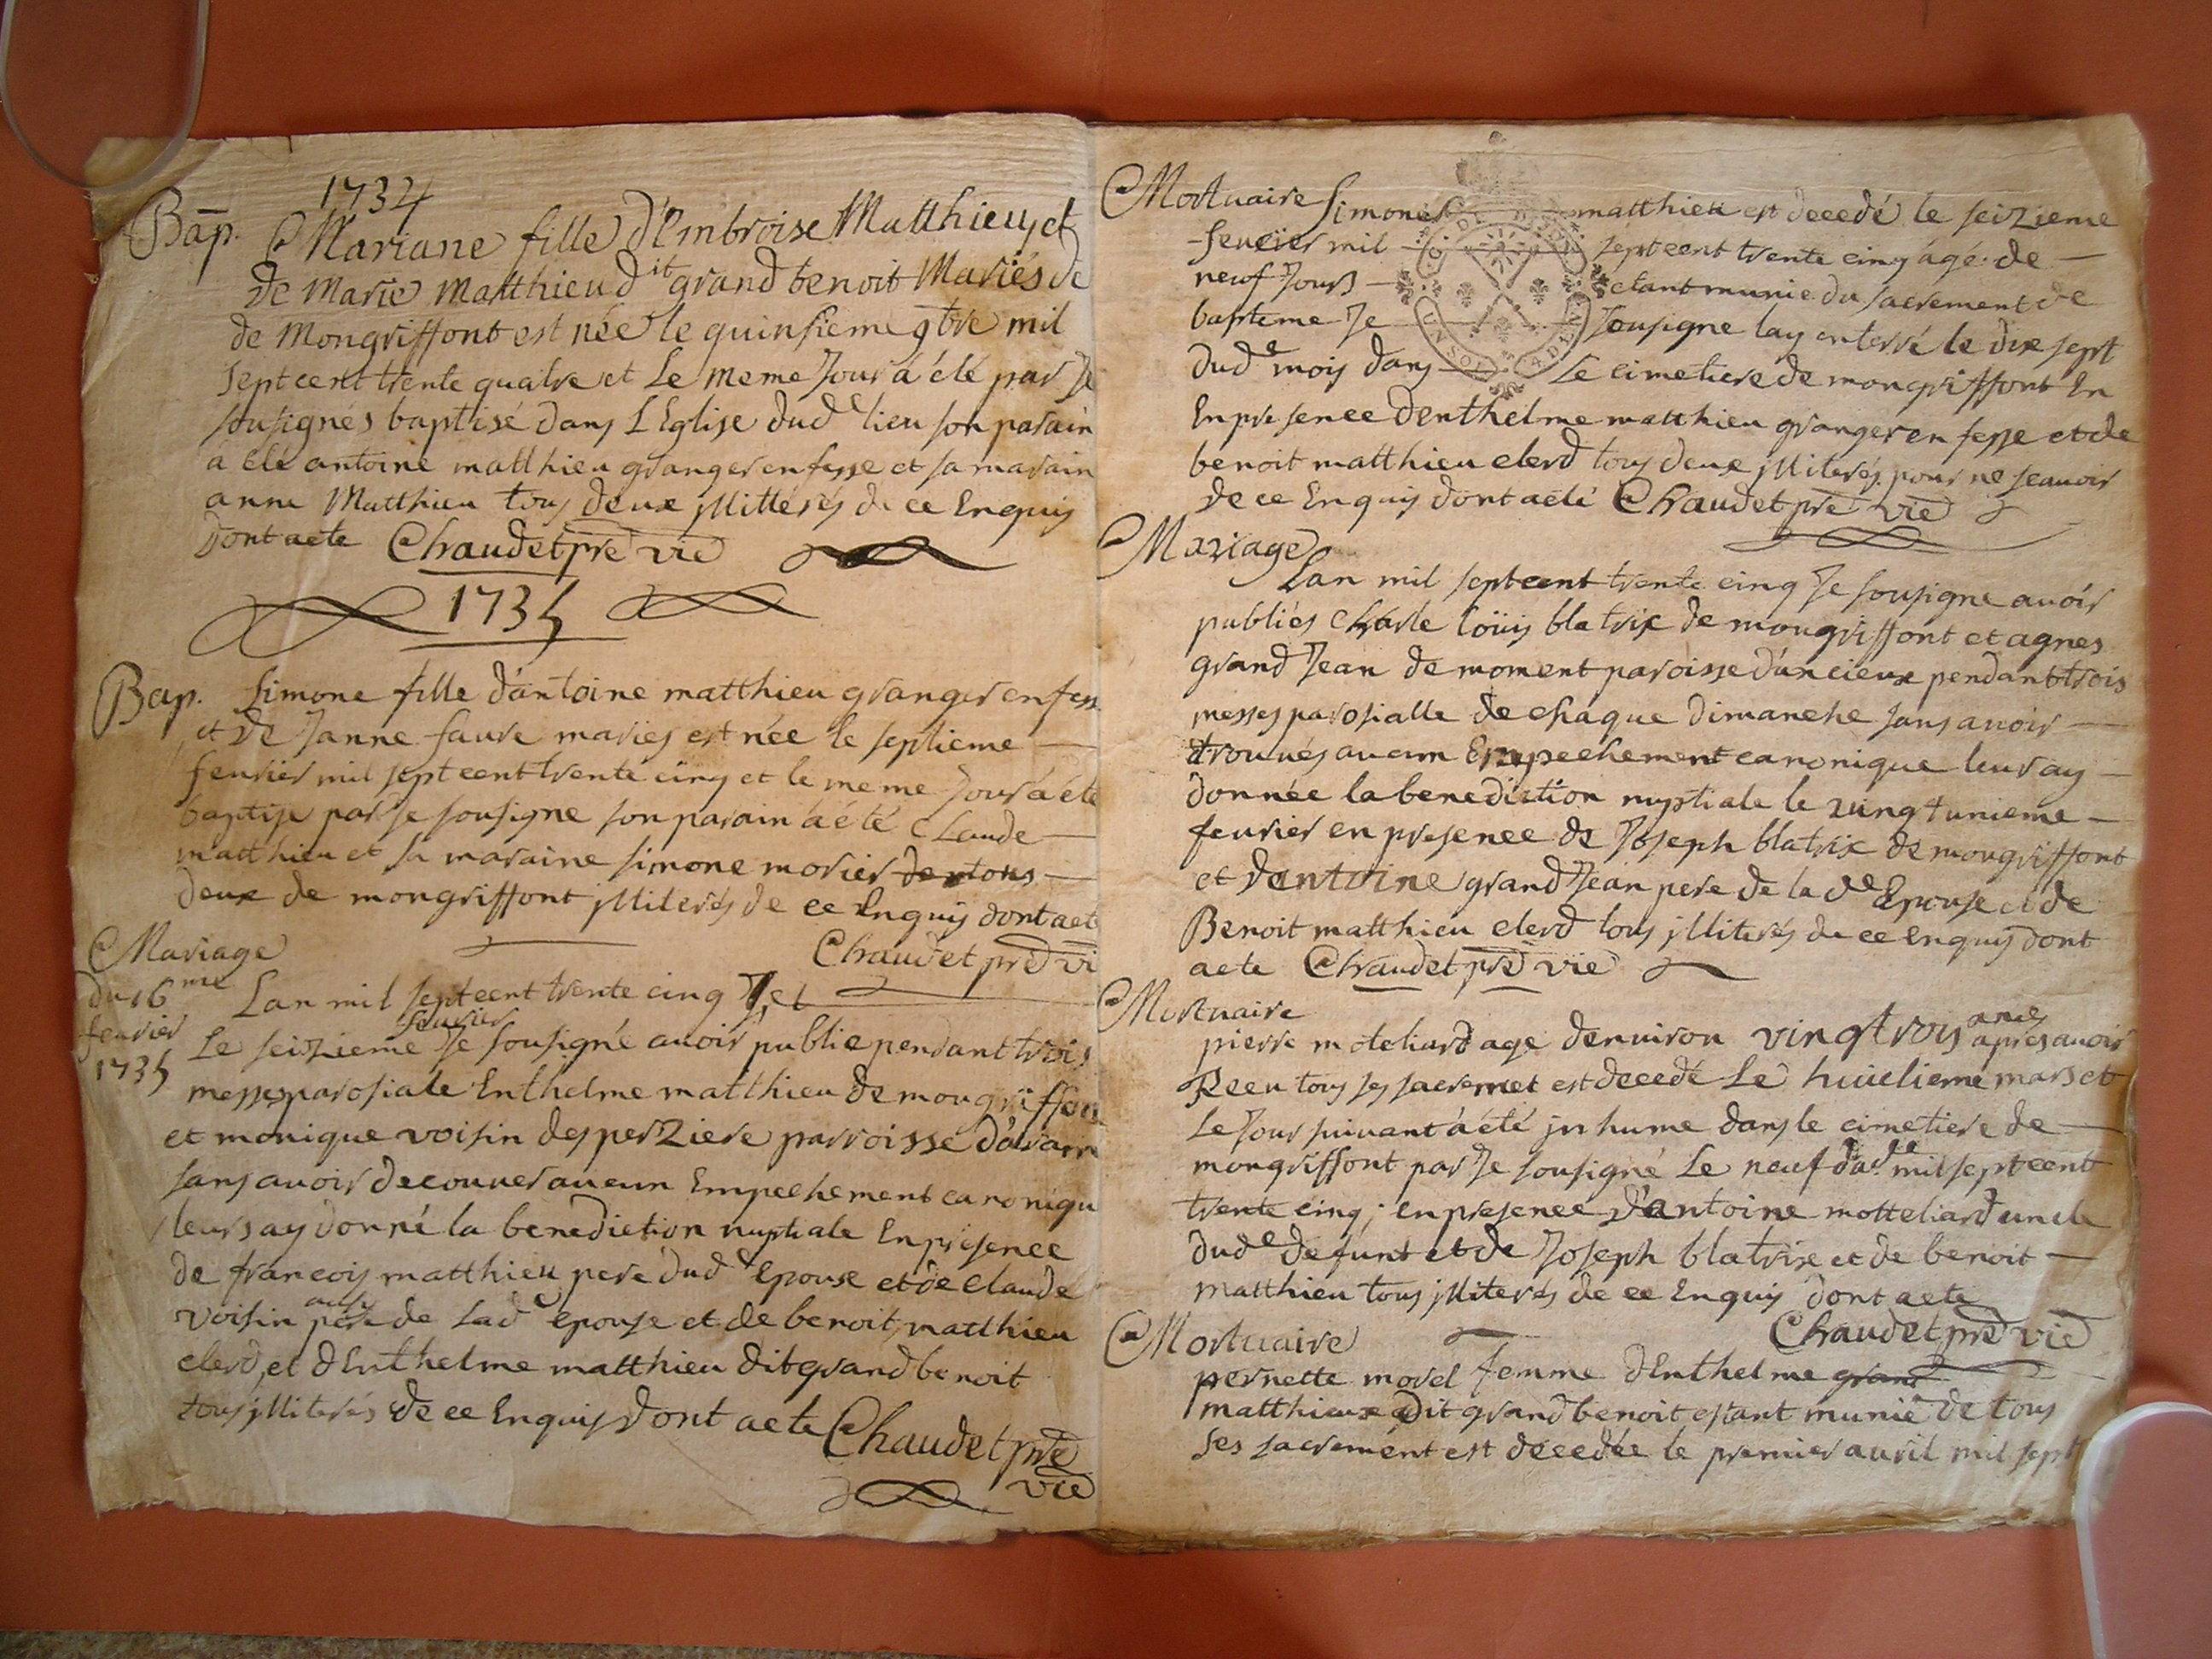 1734
Bap. Mariane fille d'Embroise Matthieu et
de Marie Matthieu dit grand benoit Mariés de
de Mongriffont est née le quinsieme 9bre mil
sept cent trente quatre et Le meme Jour á été par Je
sousignés baptisé dans L'Eglise dude lieu son parain
a été antoine matthieu granger en fesse et sa marain
anne Matthieu tous deux jllitterés de ce Enquis
Dont acte Chaudet pre vie
1735
Bap. Simone fille d'antoine matthieu granger en fess
et de Janne faure mariés est née le septieme
feurier mil sept cent trente cinq et le meme Jour á été
baptise par Je sousigne son parain á été Claude
matthieu et sa maraine simone morier de tous
deux de mongriffont jlliterés de ce Enquis dont acte
Chaudet pre vi
Mariage
du 16me
feurier
1735
Lan mil sept cent trente cinq Jet
feurier
Le seizieme Je sousigné auoir publie pendant trois
messes parosiale Enthelme matthieu de mongriffon
et monique voisin des perziere parroisse d'aran
sans auoir decouuer aucun Empechement canoniqu
leurs ay donné la benediction nuptiale En presence
de francois matthieu pere dude epouse et de claude
voisin aussy pere de Lade epouse et de benoit matthieu
clerd, et d'Enthelme matthieu dit grand benoit
tous jlliterés de ce Enquis Dont acte Chaudet pre
vie
Mortuaire Simone matthieu est decedé le seizieme
feurier mil sept cent trente cinq ágé de
neuf Jours etant munie du sacrement de
bapteme Je sousigne lay enterré le dix sept
dude mois dans Le cimetiere de mongriffont En
En presence d'enthelme matthieu granger en fesse et de
benoit matthieu clerd tous deux jlliterés pour ne scauoir
de ce Enquis dont acte Chaudet pre vie
Mariage
Lan mil sept cent trente cinq Je sousigne auoir
publiés Charle loüis blatrix de mongriffont et agnes
grand Jean de moment paroisse d'ancieux pendant trois
messes parosialle de chaque dimanche sans auoir
trouués aucun Empechement canonique leur ay
donnée la benediction nuptiale le vingt unieme
feurier en presence de Joseph blatrix de mongriffont
et d'antoine grand Jean pere de la de Epouse et de
Benoit matthieu clerd tous jlliterés de ce enquis dont
acte Chaudet pre vie
Mortuaire
pierre moteliard age denuiron vingtrois apres auoir
Receu tous ses sacremet est decedé Le huictieme mars et
Le Jour suiuant á été jnhume dans le cimetiere de
mongriffont par Je sousigné Le neuf mil sept cent
trente cinq; en presence d'antoine motteliard uncle
dude defunt et de Joseph blatrix et de benoit
matthieu tous jlliterés de ce Enquis Dont acte
Chaudet pre vie
Mortuaire
pernette morel femme d'Enthelme grand
matthieux dit grand benoit estant munie de tous
ses sacremént est décedée le premier auril mil sept